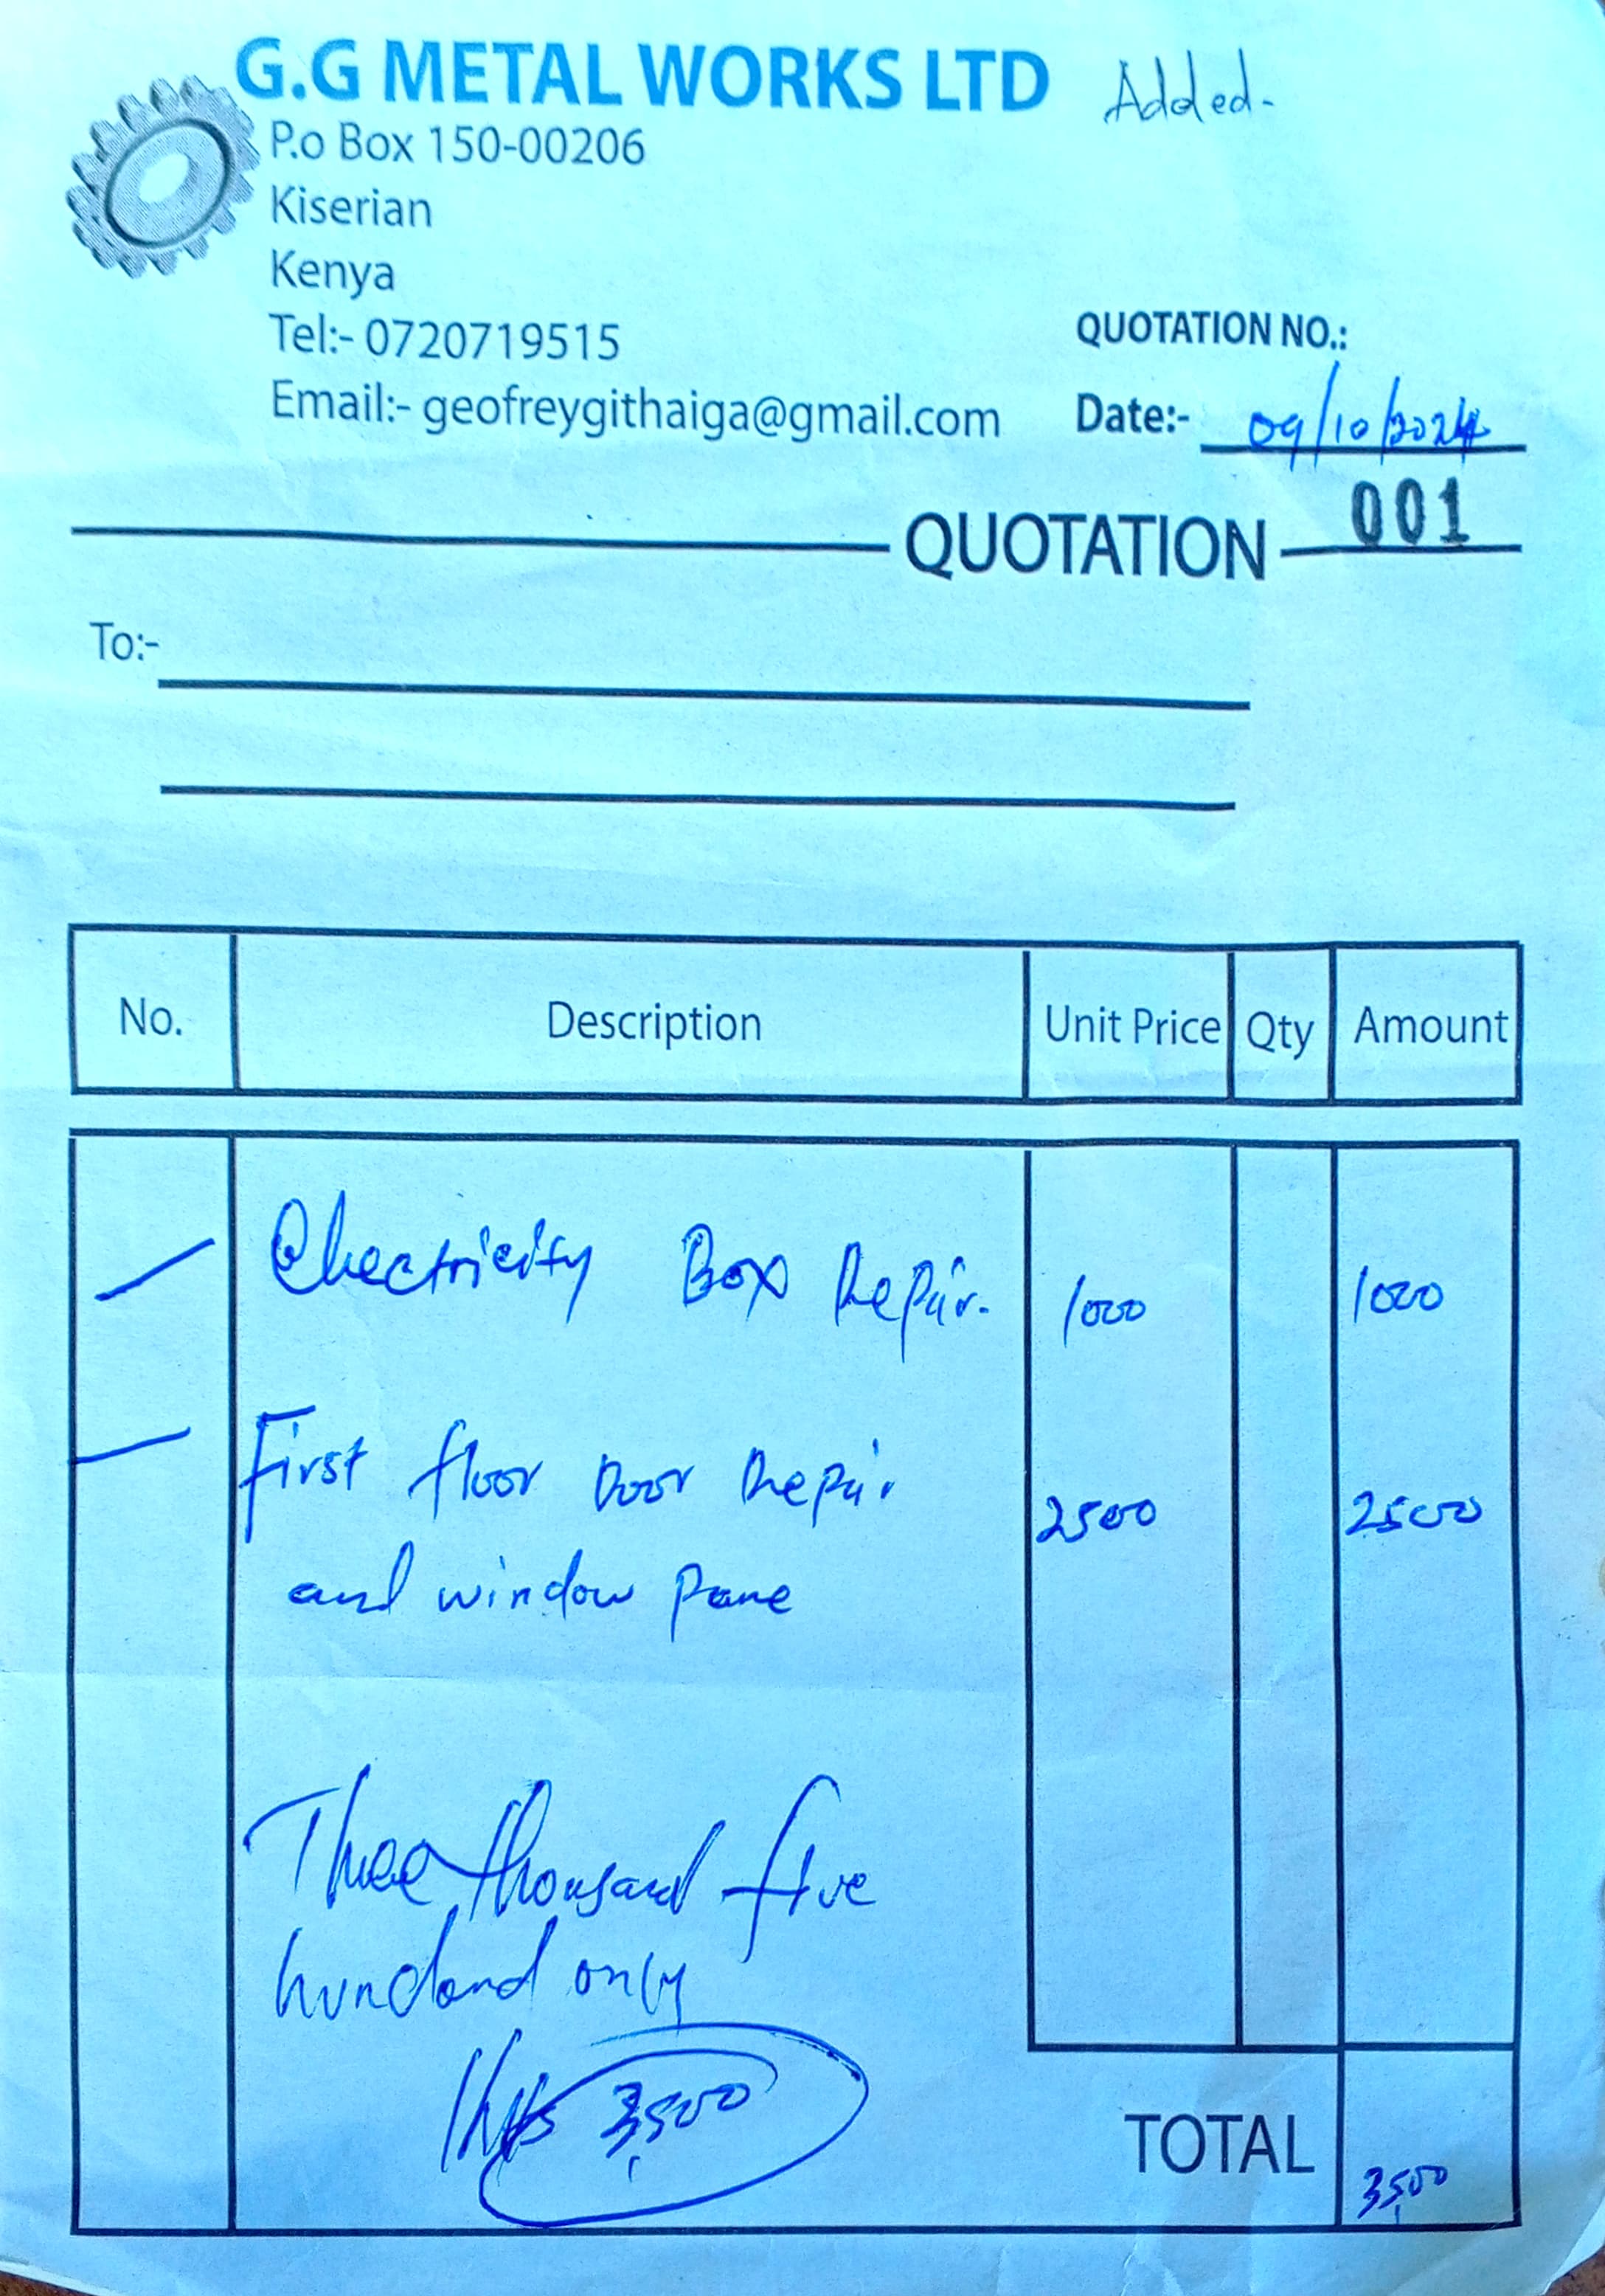 G.G METAL WORKS LTD
Added-
P.o Box 150-00206
Kiserian
Kenya
Tel:- 0720719515
Email:- geofreygithaiga@gmail.com
QUOTATION NO.:
Date:- 09/10/2024
QUOTATION 001
To:-
No. Description Unit Price Qty Amount
Electricity Box Repair. 1000 1000
First floor Door Repair 2500 2500
and window pane
Three thousand five
hundred only
3,500
TOTAL 3,500